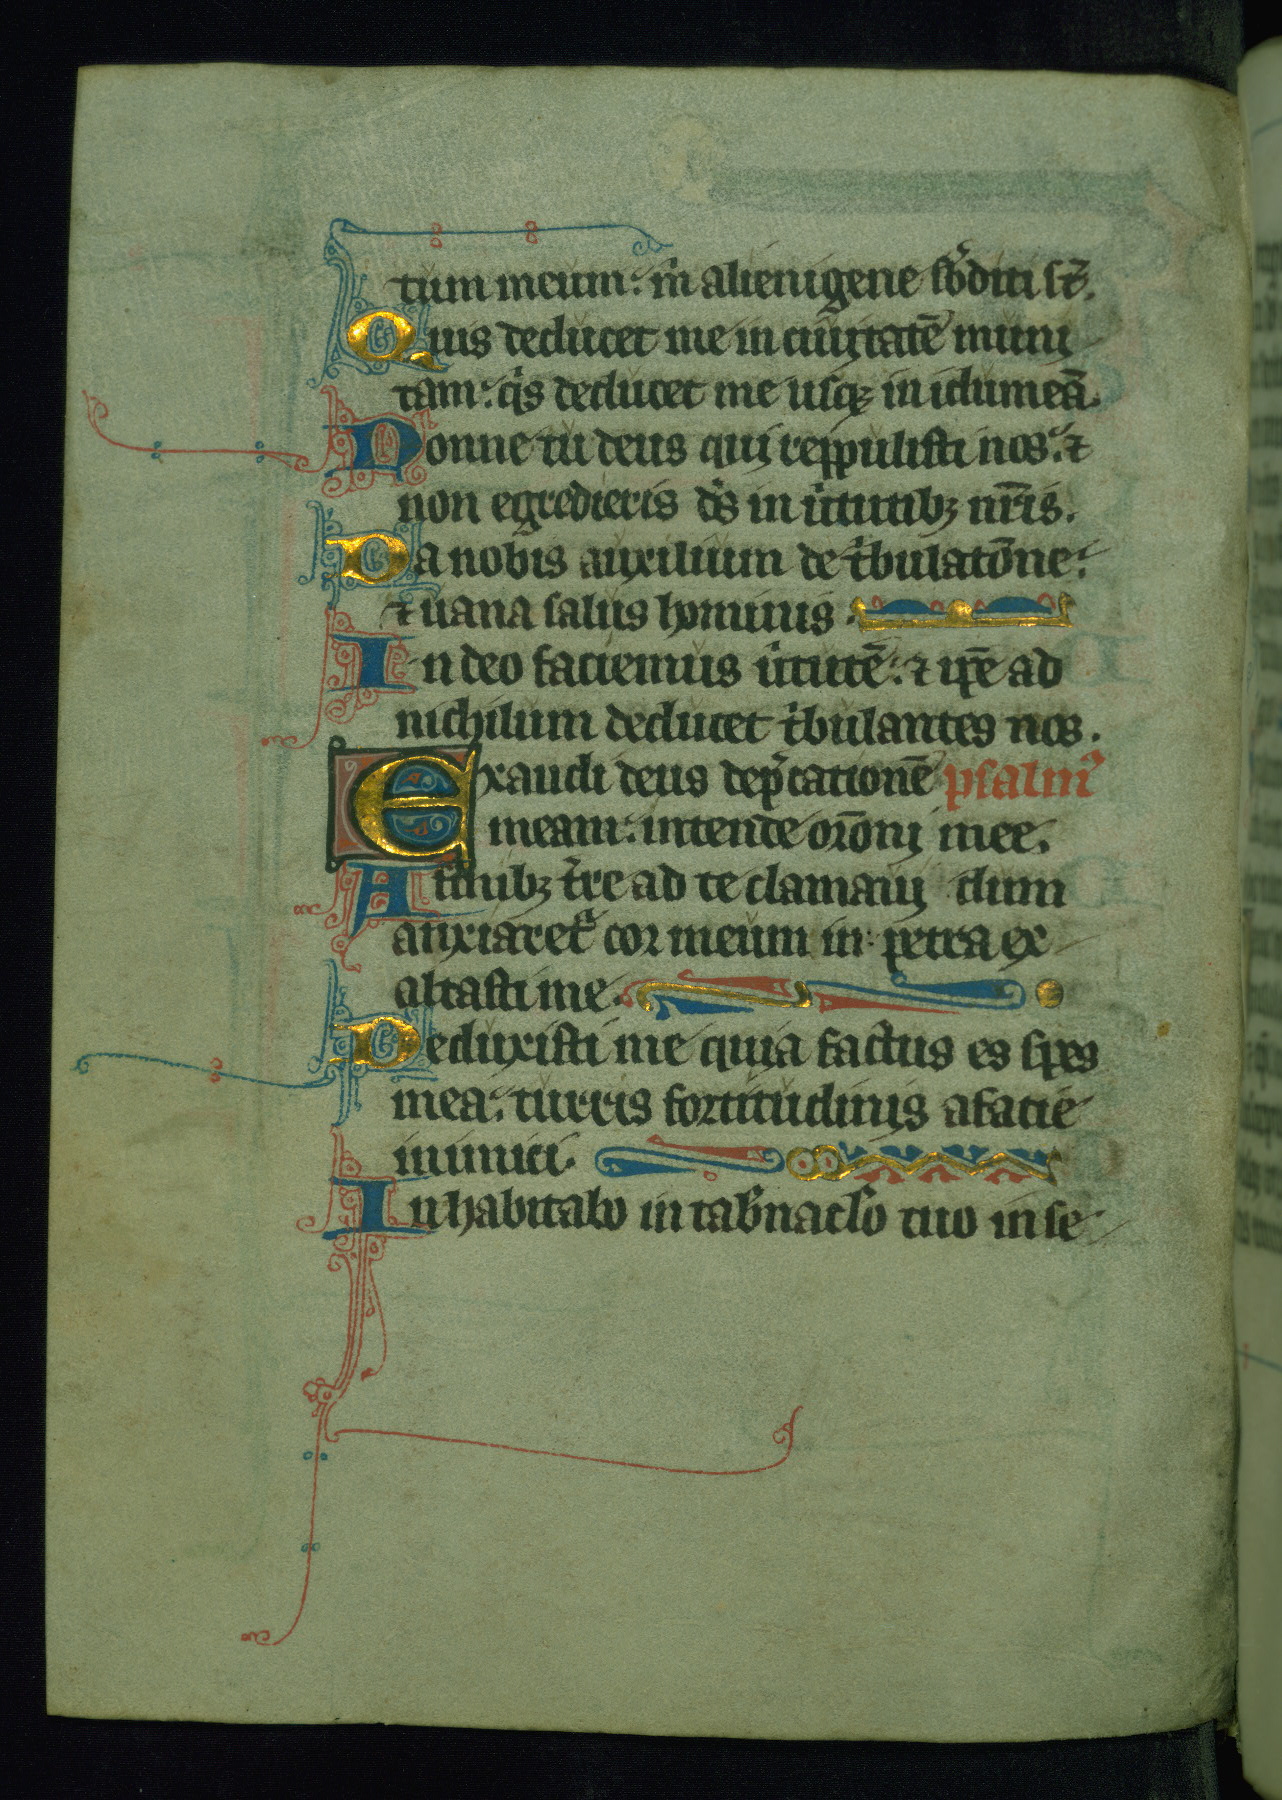 tum meum: m̄ alienigene sb̓diti st̄.
Quis deducet me in ciuitatē muni
tam: qͥs deducet me usqꝫ in idumeā.
Nonne tu deus qui reppulisti nos: ⁊
non egredieris d̄s in uͥtutibꝫ nr̄is.
Da nobis auxilium de tͥbulatōne:
⁊ uana salus hominis.
In deo faciemus uͥtutē: ⁊ ip̄e ad
nichilum deducet tͥbulantes nos.
Exaudi deus dep̓cationē psalm̓
meam: intende orōni mee.
A finibꝫ t̓re ad te clamaui dum
anxiaret᷑ cor meum in petra ex
altasti me.
Deduxisti me quia factus es spes
mea: turris fortitudinis a facie
inimici.
Inhabitabo in tab̓naclo̓ tuo in se